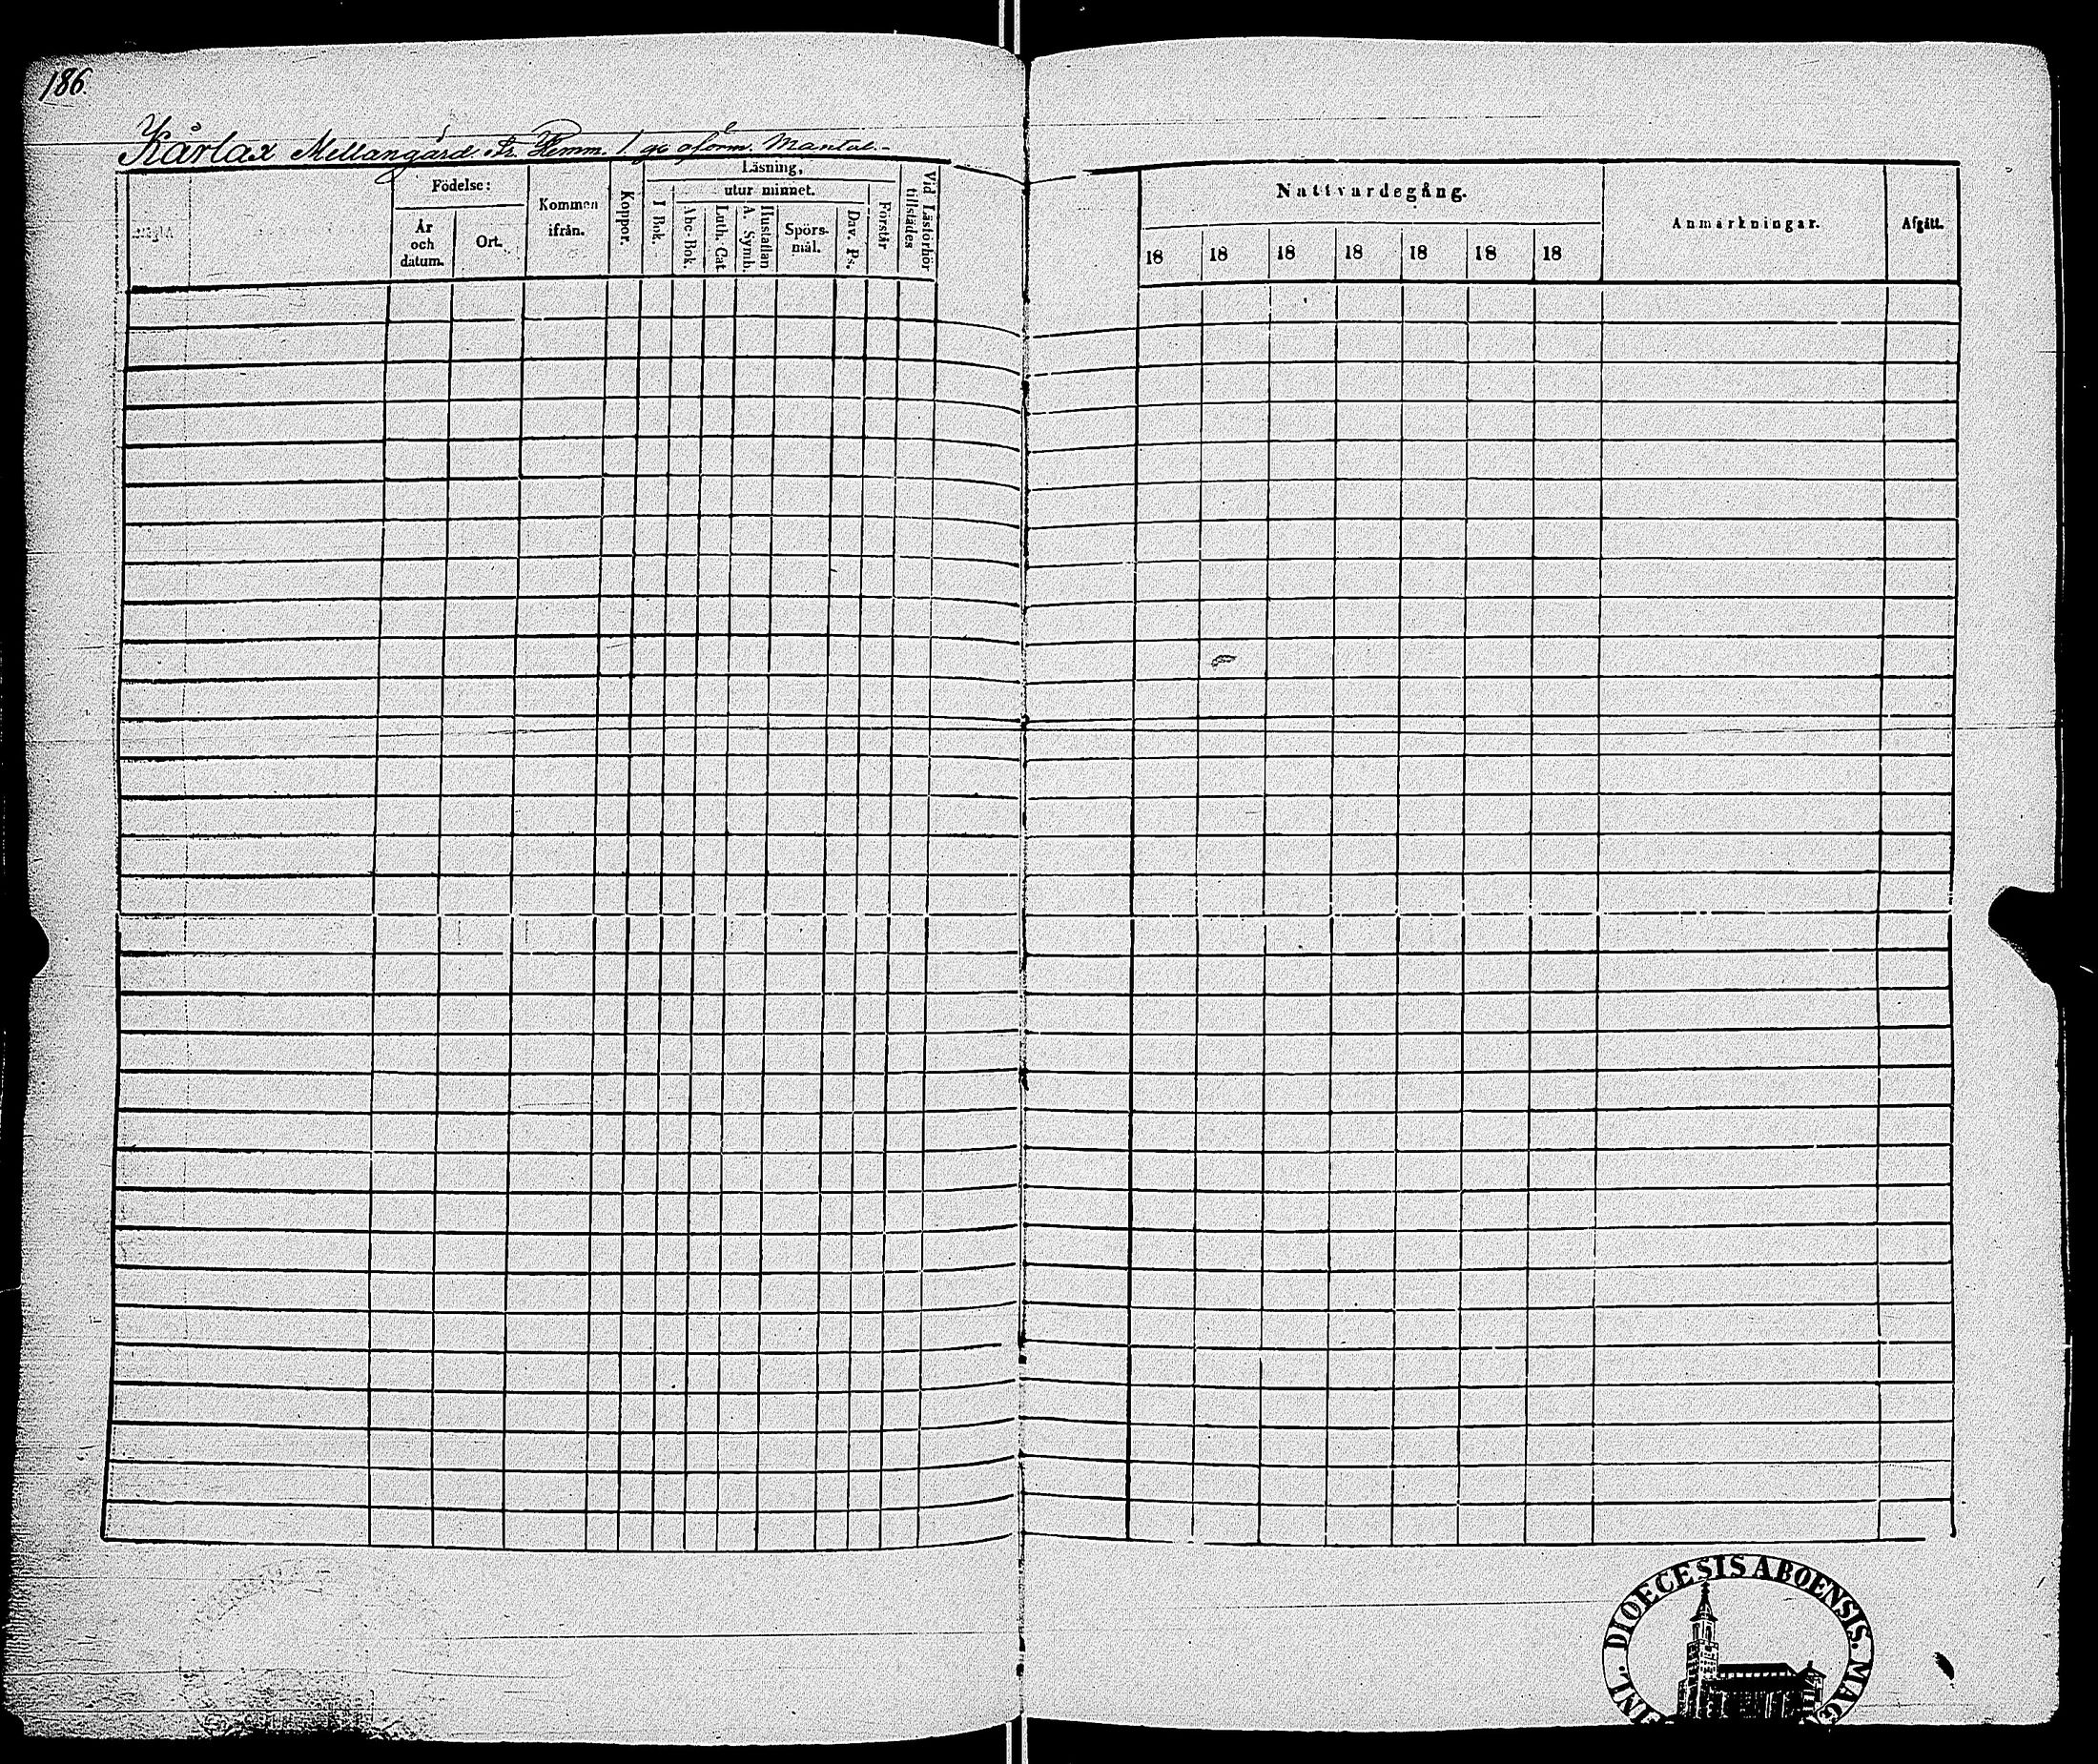 186.
Kårlax Mellangård Sk. Hemm. 1. go oförm. Mantal.-
Födelse:
År och datum.
Ort.
Kommen ifrån.
Koppor.
Läsning,
I Bok.
utur minnet.
Abc-Bok.
Luth. Cat.
Hustaflan A. Symb.
Spörs-mål.
Dav. Ps.
Förstår
Vid Läsförhör tillstädes
Nattvardsgång.
18 18 18 18 18 18 18
Anmärkningar.
Afgått.
DIOECESIS ABOENSIS. MAG
FINL.